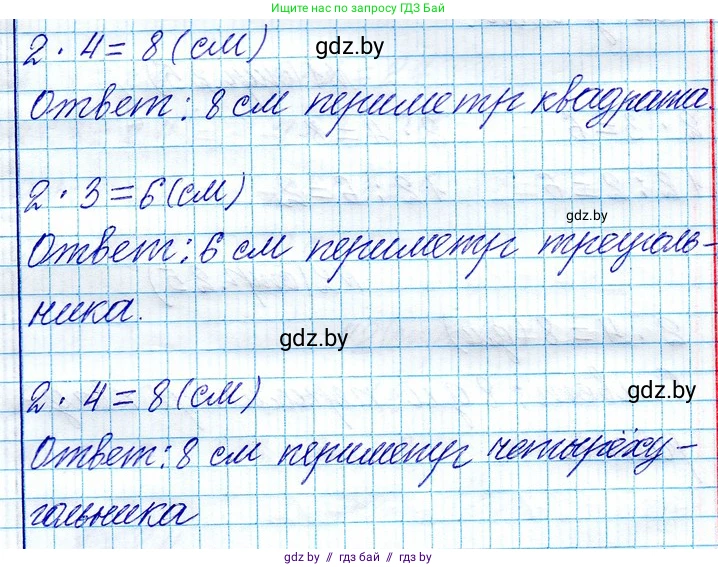 Ищите нас по запросу ГДЗ Бай
2 · 4 = 8 (см)
gdz.by
Ответ: 8 см периметр квадрата.
2 · 3 = 6 (см)
gdz.by
Ответ: 6 см периметр треуголь-
ника.
gdz.by
2 · 4 = 8 (см)
gdz.by
Ответ: 8 см периметр четырёху-
гольника
gdz.by // гдз бай // гдз by